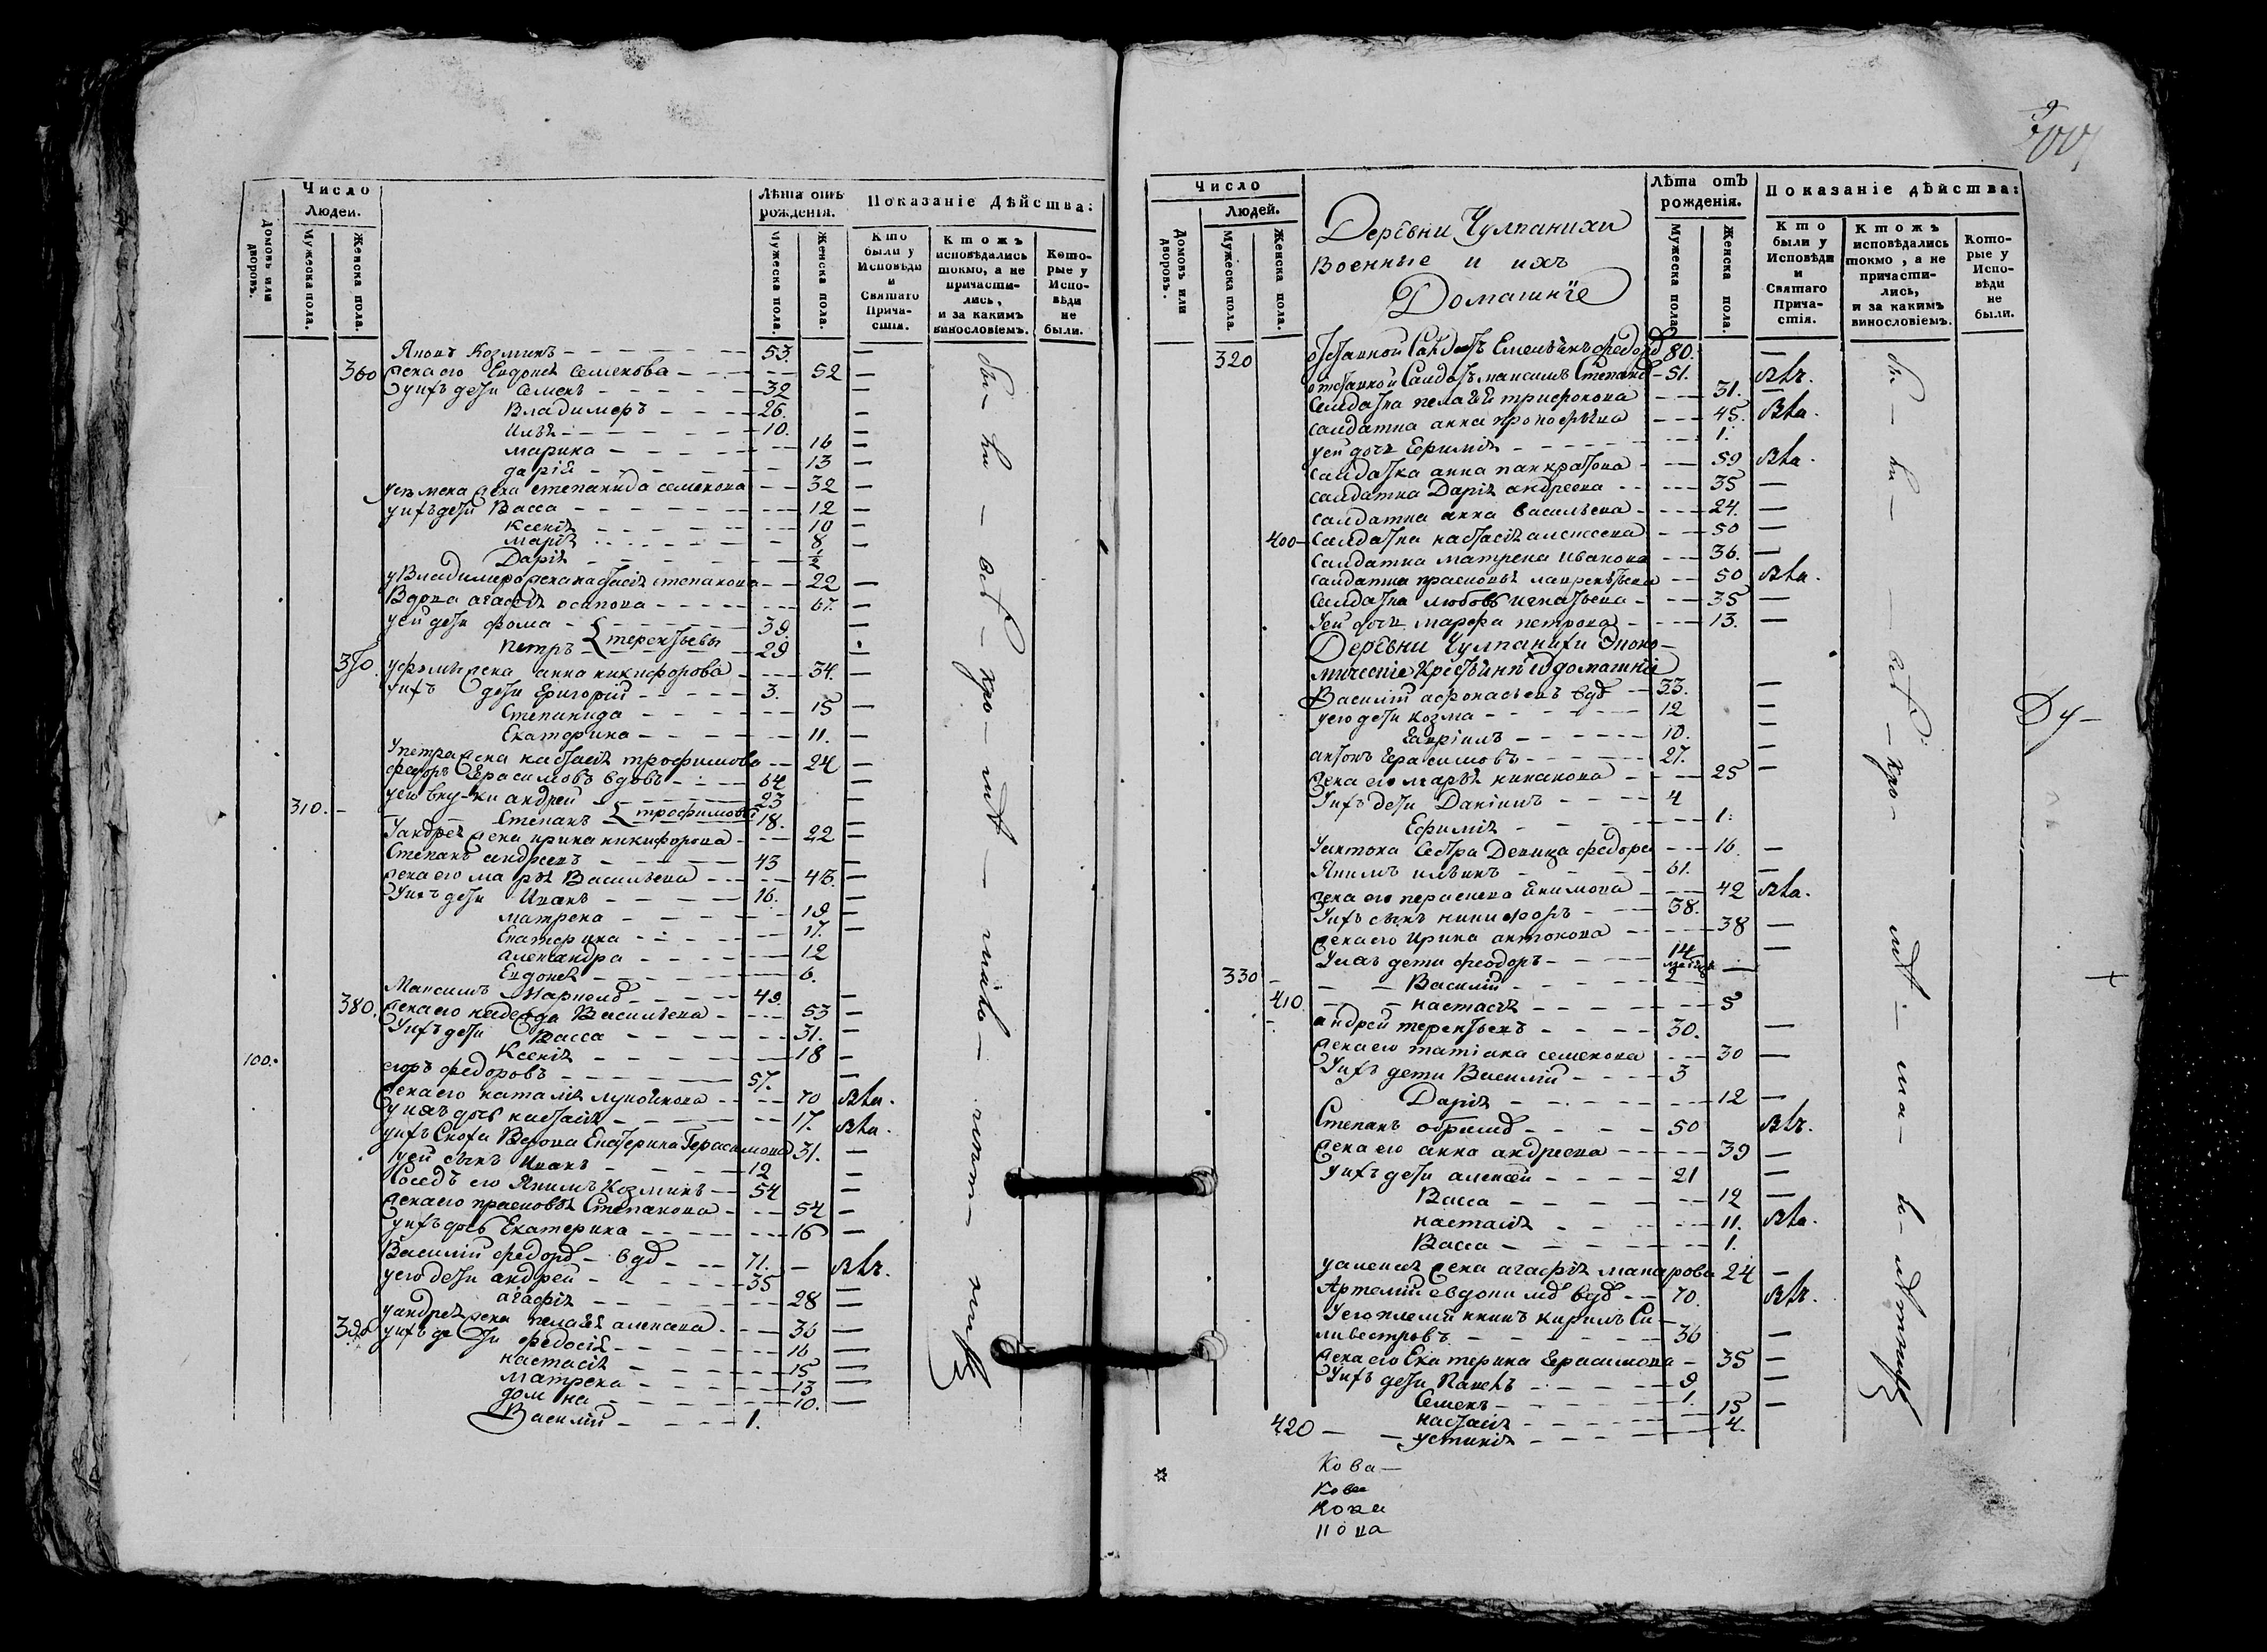 Число
Людей.
Домовъ или дворовъ.
Мужеска пола.
Женска пола.
Лѣта отъ рожденія.
Мужеска пола.
Женска пола.
Показаніе Дѣйства:
Кто были у Исповѣди и Святаго Прича-стія.
Ктожъ исповѣдались токмо, а не причасти-лись, и за какимъ винословіемъ.
Кото-рые у Испо-вѣди не были.
Яковъ Козминъ 53.
360 жена его Евдокея Семенова 52
у ихъ дети Семенъ 32
Владимеръ 26.
Илья 10.
марина 16
дарія 13
у семена жена степанида семенова 32
у ихъ дети Васса 12
Ксенія 10
марія 8
Дарія 1/2
у Владимера жена настасія степанова 22
Вдова агафія осипова 67.
у ей дети фома 39.
Петръ терентьевы 29
370. у фомы жена анна никифорова 34.
у ихъ дети григорій 3.
Степанида 15
Екатерина 11.
У петра жена настасія трофимова 24
федоръ Герасимовъ вдовъ 64
310. у его внуки андрей 23
Степанъ трофимовы 18.
У андрея жена ирина никифорова 22
Степанъ андреевъ 43
жена его марья Васильева 43.
У ихъ дети Иванъ 16.
матрена 19
Екатерина 17.
александра 12
Евдокея 6.
Максимъ Карповъ 49.
380. жена его надежда Васильева 53
У ихъ дети Васса 31.
Ксенія 18
100. егоръ федоровъ 57.
жена его наталія 70
у ихъ дочь настасія 17.
у ихъ сноха Вдова Екатерина Герасимова 31.
у ей сынъ Иванъ 12
Соседъ его Якимъ Козминъ 54
жена его прасковья Степанова 54
у ихъ дочь Екатерина 16
Василій федоровъ вдовъ 71.
у его дети андрей 35
агафія 28
у андрея жена пелагея 36
390 у ихъ дети федосія 16
настасія 15
матрена 13
домна 10.
Василій 1.
Число
Людей.
Домовъ или дворовъ.
Мужеска пола.
Женска пола.
Деревни Чулпанихи
Военные и ихъ
Домашніе
Лѣта отъ рожденія.
Мужеска пола.
Женска пола.
Показаніе дѣйства:
Кто были у Исповѣди и Святаго Прича-стія.
Ктожъ исповѣдались токмо, а не причасти-лись, и за какимъ винословіемъ.
Кото-рые у Испо-вѣди не были.
320 отставной Салдатъ Емельянъ федоровъ 80.
отставной Салдатъ максимъ Степановъ 51.
салдатка пелагея трифонова 31.
салдатка анна прокофьева 45.
у ей дочь Ефимія 1.
салдатка анна панкратова 59
салдатка Дарія андреева 35
салдатка анна васильева 24.
400 салдатка настасія алексеева 50
салдатка матрена иванова 36.
салдатка прасковья лаврентьева 50
салдатка любовь игнатьева 35
у ей дочь марфа петрова 13.
Деревни Чулпанихи Эконо-
мические Крестьяне и домашніе
Василій афонасьевъ вдовъ 33.
у его дети козма 12
Гавріилъ 10.
антонъ Герасимовъ 27.
жена его марья 25
У ихъ дети Даніилъ 4
Ефимія 1.
У антона сестра Девица федора 16
Якимъ ильинъ 61.
жена его Екимова 42
У ихъ сынъ никифоръ 38.
жена его Ирина антонова 38
У ихъ дети феодоръ 14
330 Василій
410 настасія 5
андрей терентьевъ 30.
жена его татіана семенова 30
У ихъ дети Василій 3
Дарія 12
Степанъ 50
жена его анна андреева 39
У ихъ дети алексей 21
Васса 12
настасія 11.
Васса 1.
у алексея жена агафія макарова 24
Артемій евдокимовъ вдовъ 70.
У его племянникъ кирилъ Си-
ливестровъ 36
жена его Екатерина Герасимова 35
У ихъ дети Павелъ 9
Семенъ 1.
настасія 15
420 устинія 4.